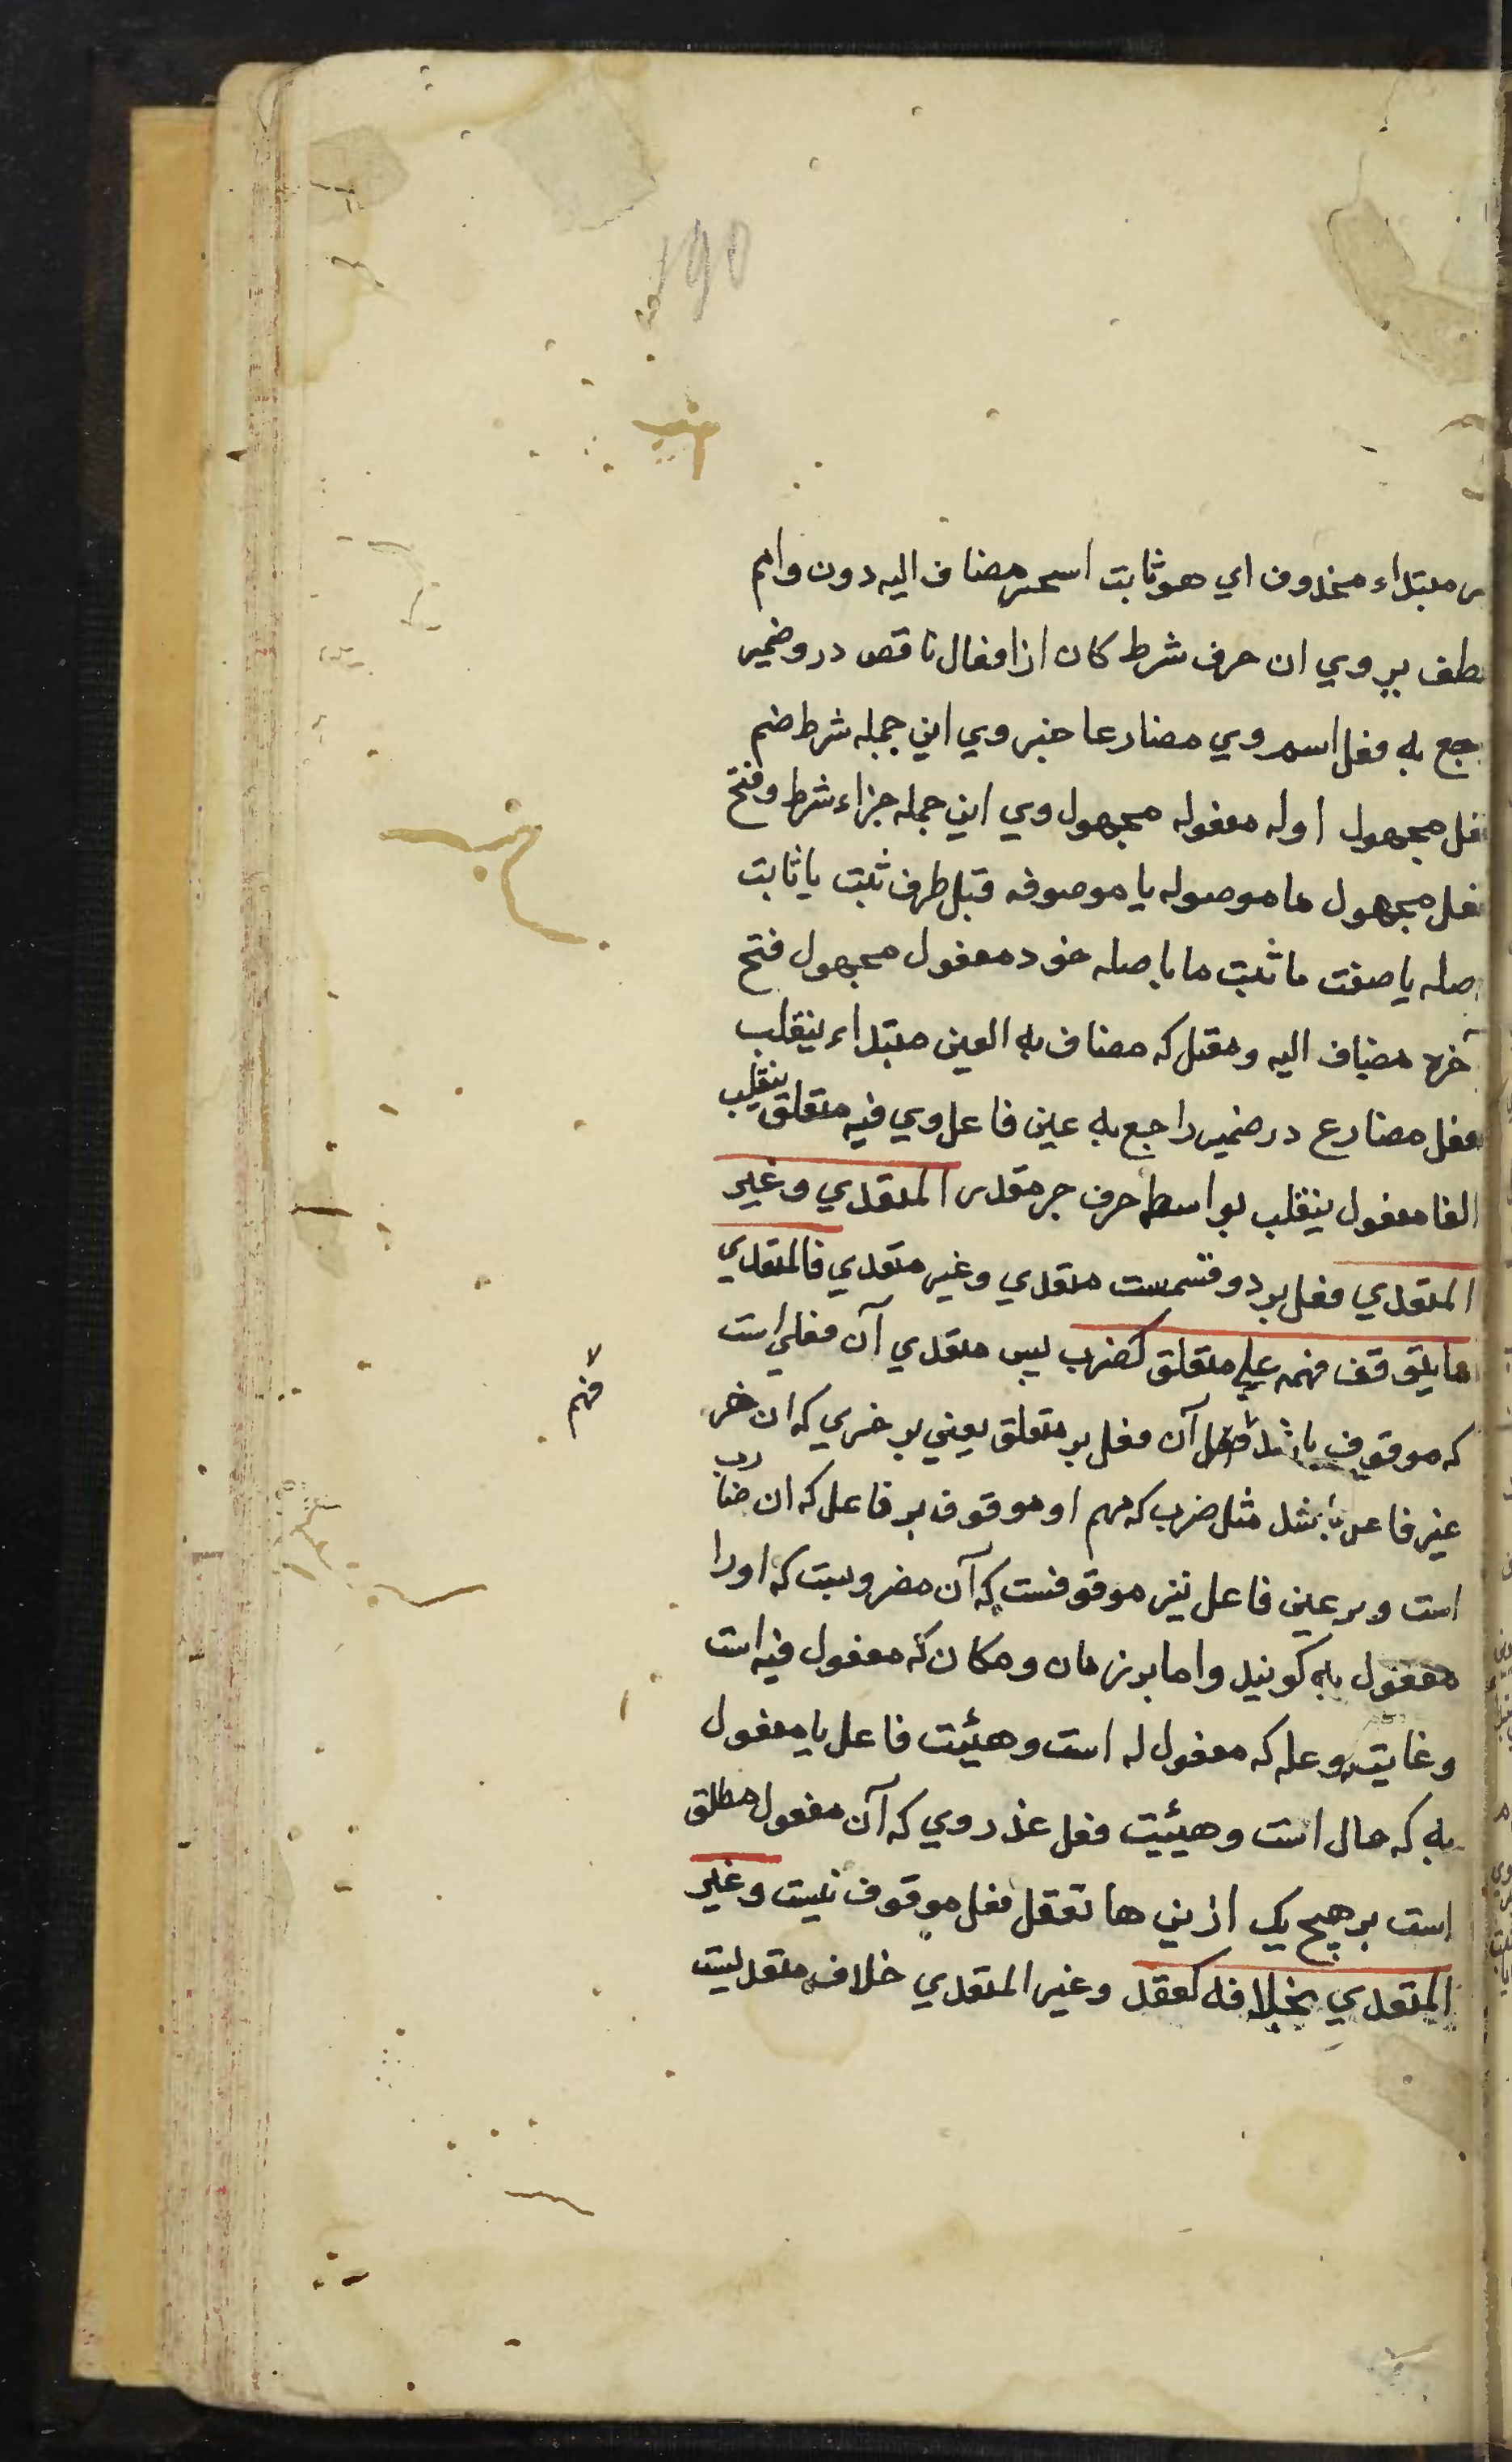 190
مبتداء محذوف اي هو ثابت اسم مضاف اليه دون وام
بر وي ان حرف شرط كان از افعال ناقص درو ضمير
به فعل اسم وي مضارعا خبر وي اين جمله شرط ضم
مجهول اوله مفعوله مجهول وي اين جمله جزاء شرط و فتح
مجهول ما موصوله يا موصوفه قبل ظرف ثبت يا ثابت
صله يا صفت ما ثبت ما با صله خود مفعول مجهول فتح
آخره مضاف اليه و معتل كه مضاف به العين مبتداء ينقلب
فعل مضارع در ضمير راجع به عين فاعل وي فيه متعلق ينقلب
الفا مفعول ينقلب بواسطه حرف جر مقدر المتعدي و غير
المتعدي فعل بر دو قسمست متعدي و غير متعدي فالمتعدي
ما يتوقف فهمه علي متعلق كضرب پس متعدي آن فعلي است
كه موقوف باشد آن فعل بر متعلق يعني بر خري كه ان خر
فهم
غير فاعل باشد مثل ضرب كه فهم او موقوف بر فاعل كه ان ضارب
است و بر غير فاعل نيز موقوفست كه آن مضروبست كه اورا
مفعول به كويند و اما بر زمان و مكان كه مفعول فيه است
و غايت و عله كه مفعول له است و هيئت فاعل يا مفعول
به كه حال است و هيئت فعل عذر وي كه آن مفعول مطلق
است بر هيچ يك ازين ها تعقل فعل موقوف نيست و غير
المتعدي بخلافه كقعد و غير المتعدي خلاف متعديست